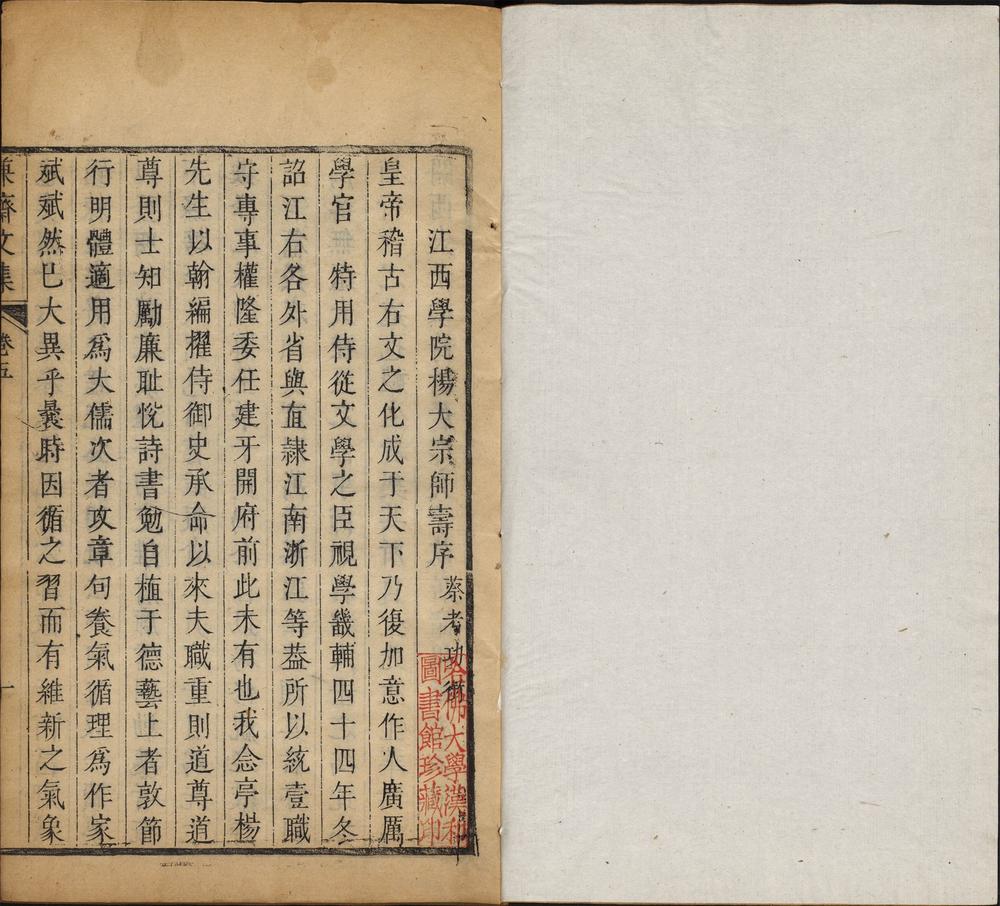 江西學院楊大宗師壽序 蔡考功徵
皇帝稽古右文之化成于天下乃復加意作人廣厲
學官 特用侍從文學之臣視學畿輔四十四年冬
詔江右各外省與直隸江南浙江等葢所以統壹職
守專事權隆委任建牙開府前此未有也我念亭楊
先生以翰編擢侍御史承命以來夫職重則道尊道
尊則士知勵廉耻悅詩書勉自植于德藝上者敦節
行明體適用爲大儒次者攻章句養氣循理爲作家
斌斌然已大異乎曩時因循之習而有維新之氣象
齋文集 卷五 一
哈佛大學漢和
圖書館珍藏印